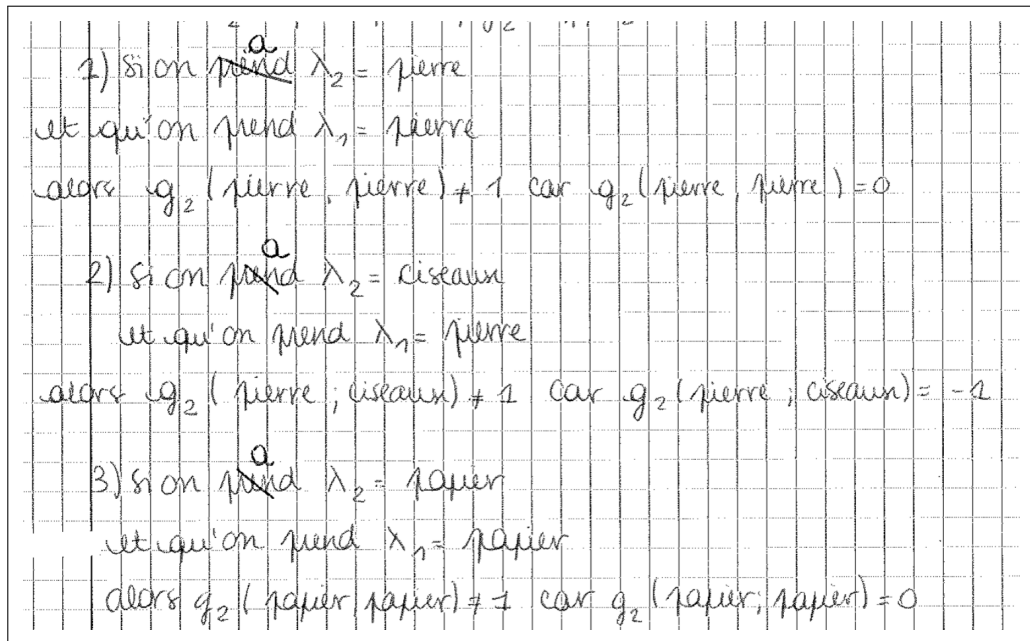 1) Si on a λ₂ = pierre
et qu'on prend λ₁ = pierre
alors g₂ (pierre, pierre) ≠ 1 car g₂ (pierre, pierre) = 0
2) Si on a λ₂ = ciseaux
et qu'on prend λ₁ = pierre
alors g₂ (pierre ; ciseaux) ≠ 1 car g₂ (pierre ; ciseaux) = -1
3) Si on a λ₂ = papier
et qu'on prend λ₁ = papier
alors g₂ (papier, papier) ≠ 1 car g₂ (papier; papier) = 0